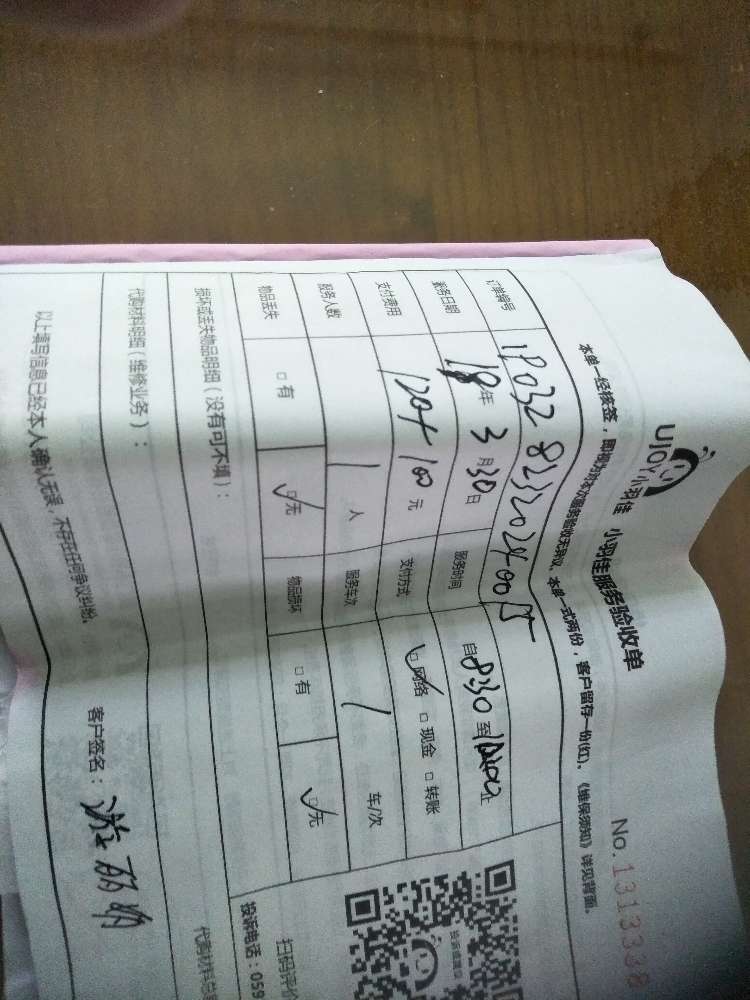 UJOY小羽佳 小羽佳服务验收单
No.1313338
本单一经核签，即视为对本次服务验收无异议。本单一式两份，客户留存一份(红)。《维保须知》详见背面。
订单编号
服务日期 18年 3月30日 服务时间 自8:30至 止
支付费用 120+100元 支付方式 ☑网络 □现金 □转账
服务人数 1人 服务车次 1 车/次
物品丢失 □有 ☑无 物品损坏 □有 ☑无
损坏或丢失物品明细（没有可不填）：
代购材料明细（维修业务）：
代购材料总
以上填写信息已经本人确认无误，不存在任何争议纠纷。
客户签名：游丽娟
扫码评价
投诉电话：059